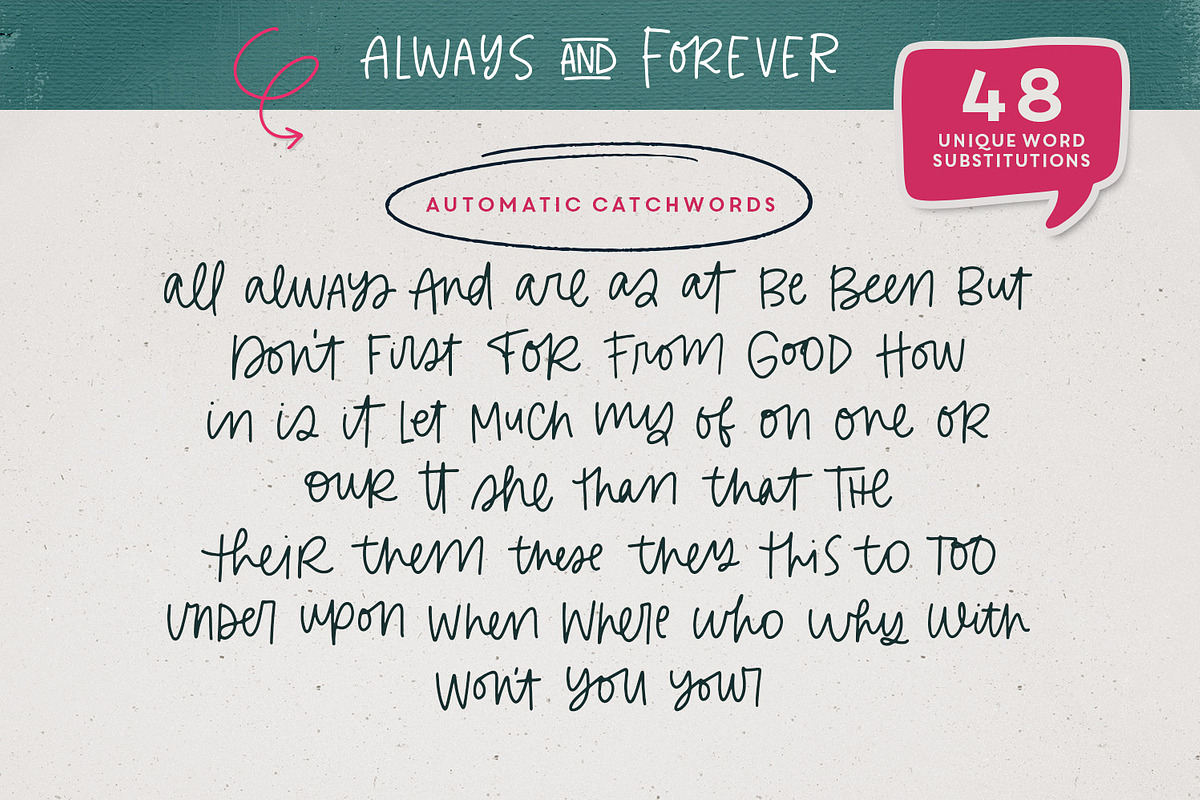 ALWAYS AND FOREVER
48
UNIQUE WORD
SUBSTITUTIONS
AUTOMATIC CATCHWORDS
all always And are as at Be Been But
Don't First FOR From GOOD How
in is it Let Much my of on one OR
OUR tt she than that THE
theiR them these they this to TOO
under upon When Where who why With
Won't you your